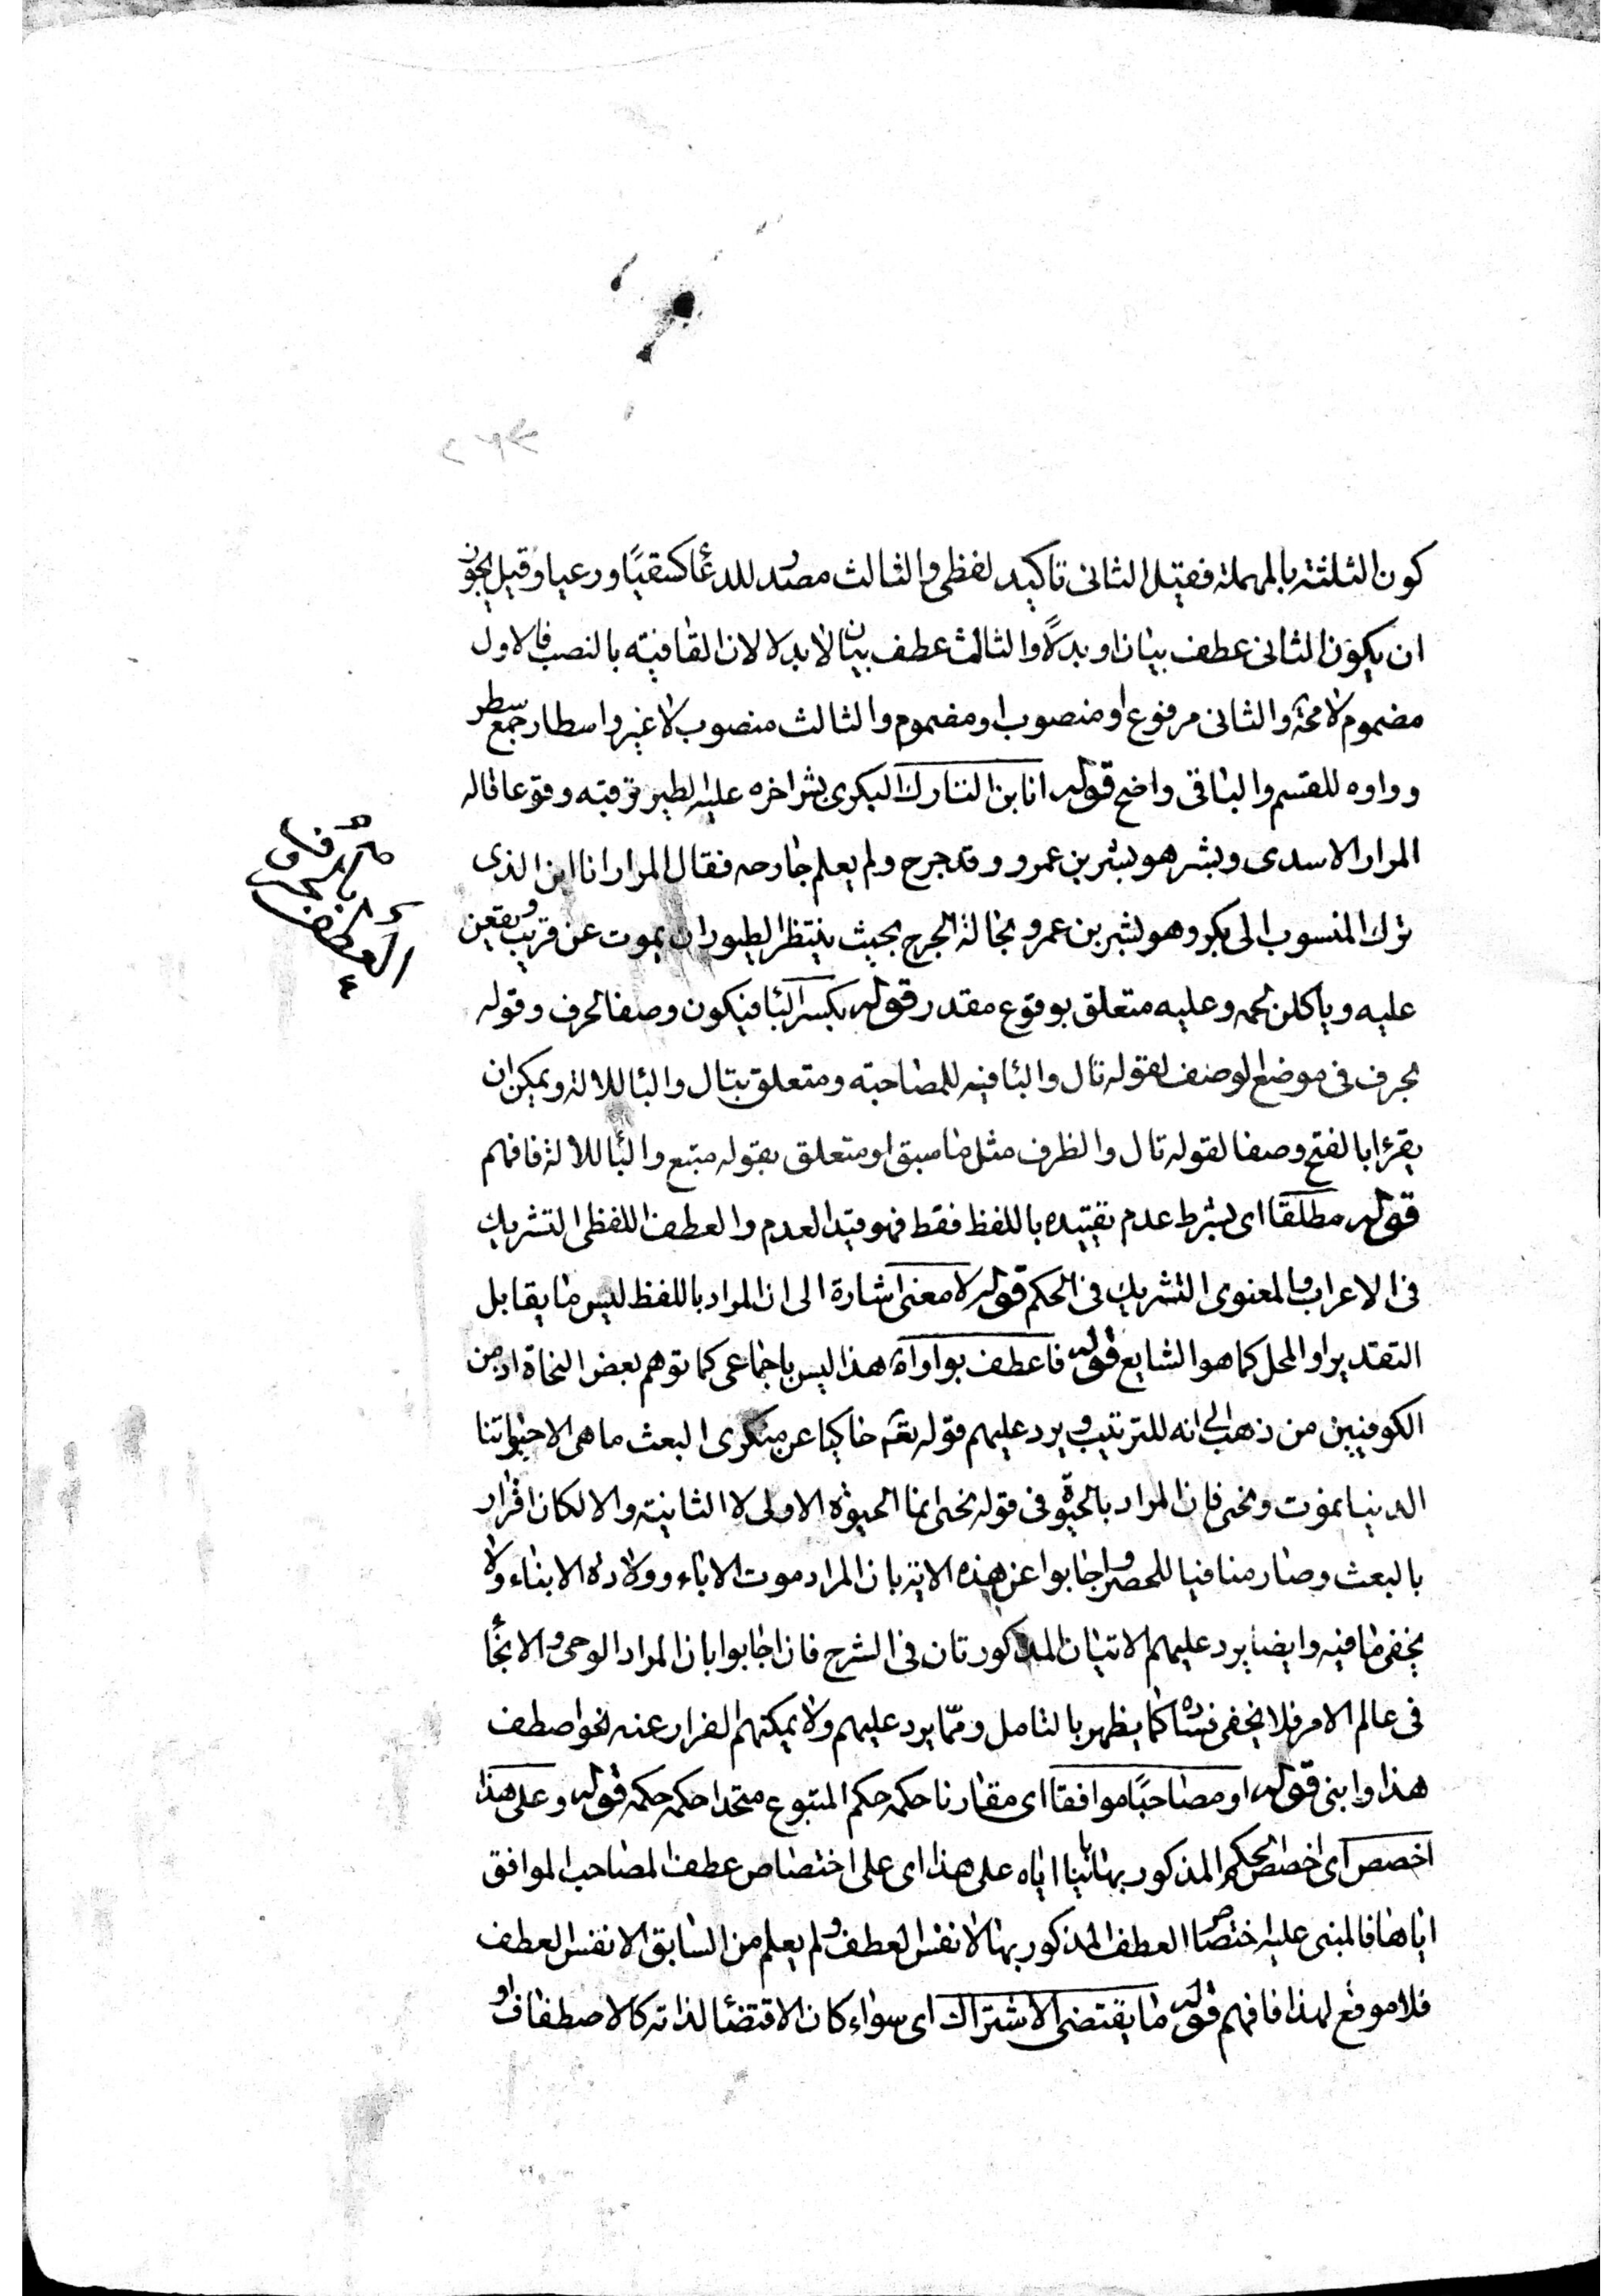 كون الثلثة بالمهملة فقيل الثانى تاكيد لفظى والثالث مصدر للدعا كسقيًا ورعيا وقيل يجوز
ان يكون الثانى عطف بيان او بدلًا والثالث عطف بيان لا بدلا لان القافية بالنصب فالاول
مضموم لامحة والثانى مرفوع او منصوب او مضموم والثالث منصوب لاغير واسطار جمع سطر
وواوه للقسم والباقى واضح قوله انا ابن التارك البكرى بشر اخره عليه الطير ترقبه وقوعا قاله
المرار الاسدى وبشر هو بشر بن عمرو وقد جرح ولم يعلم جارحه فقال المرار انا ابن الذى
ترك المنسوب الى بكر وهو بشر بن عمرو بحالة الجرح بحيث ينتظر الطيور ان يموت عن قريب ويقعن
عليه وياكلن لحمه وعليه متعلق بوقوع مقدر قوله بكسر البا فيكون وصفا لحرف وقوله
بحرف فى موضع الوصف لقوله تال والبا فيه للمصاحبة ومتعلق بتال والبا للالة ويمكن ان
يقرا بالفتح وصفا لقوله تال والظرف مثل ما سبق او متعلق بقوله متبع والبا للالة فافهم
قوله مطلقا اى بشرط عدم تقييده باللفظ فقط فهو قيد العدم والعطف اللفظى التشريك
فى الاعراب والمعنوى التشريك فى الحكم قوله لا معنى اشارة الى ان المراد باللفظ ليس ما يقابل
التقدير او المحل كما هو الشايع قوله فاعطف بواو اه هذا ليس باجماعى كما توهم بعض النحاة اذ من
الكوفيين من ذهب الى انه للترتيب ويرد عليهم قوله تعه حاكيا عن منكرى البعث ما هى الا حيواتنا
الدنيا نموت ونحى فان المراد بالحيوة فى قوله نحى انما الحيوة الاولى لا الثانية والا لكان اقرار
بالبعث وصار منافيا للحصر واجابوا عن هذه الاية بان المراد موت الاباء وولادة الابناء ولا
يخفى ما فيه وايضا يرد عليهم الايتان المذكورتان فى الشرح فان اجابوا بان المراد الوحى والانجا
فى عالم الامر فلا يخفى فساده كما يظهر بالتامل وممّا يرد عليهم ولا يمكنهم الفرار عنه نحو اصطف
هذا وابنى قوله او مصاحبًا موافقا اى مقارنا حكمه حكم المتبوع متحدا حكمه حكمه قوله وعلى هذا
اخصص اى اخصص الحكم المذكور بها بانيا اياه على هذا اى على اختصاص عطف المصاحب الموافق
اياها فالمبنى عليه اختصاص العطف المذكور بها لا نفس العطف ولم يعلم من السابق الا نفس العطف
فلا موقع لهذا فافهم قوله ما يقتضى الاشتراك اى سواء كان الاقتضا لذاته كالاصطفاف او
العطف